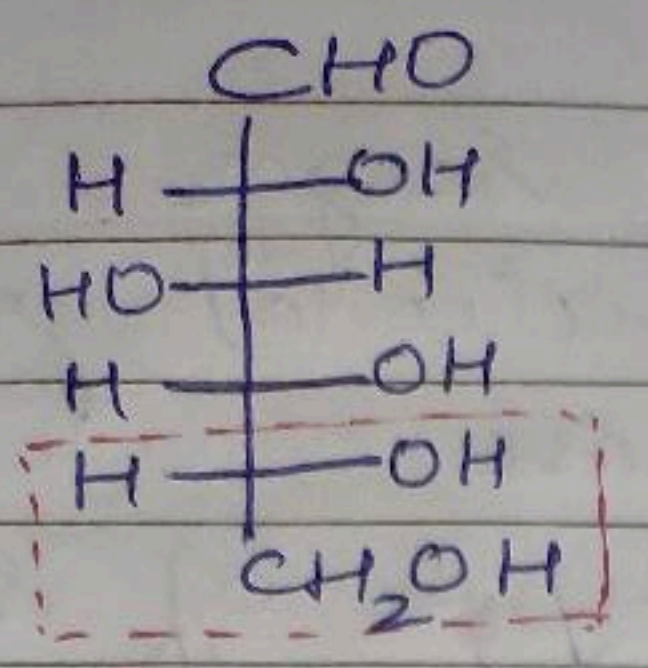 CHO
H OH
HO H
H OH
H OH
CH₂OH